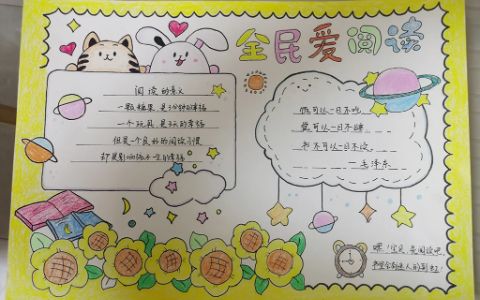 全民爱阅读
阅读的意义
一颗糖果,是3分钟的幸福
一个玩具,是3天的幸福
但是一个良好的阅读习惯
却是影响孩子一生的幸福
饭可以一日不吃
觉可以一日不睡
书不可以一日不读
——毛泽东
嘿!宝贝,爱阅读吧,